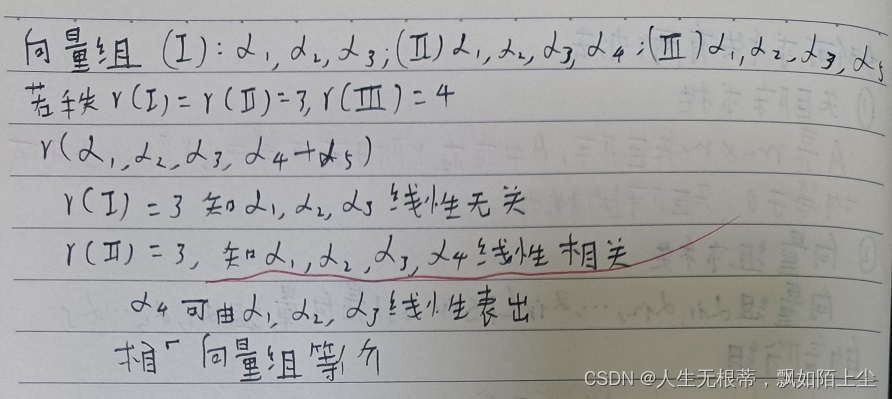 向量组 (I): α₁, α₂, α₃; (II) α₁, α₂, α₃, α₄; (III) α₁, α₂, α₃, α₅
若秩 r(I) = r(II) = 3, r(III) = 4
r(α₁, α₂, α₃, α₄+α₅)
r(I) = 3 知 α₁, α₂, α₃ 线性无关
r(II) = 3, 知 α₁, α₂, α₃, α₄ 线性相关
α₄ 可由 α₁, α₂, α₃ 线性表出
向量组等价
CSDN @人生无根蒂，飘如陌上尘